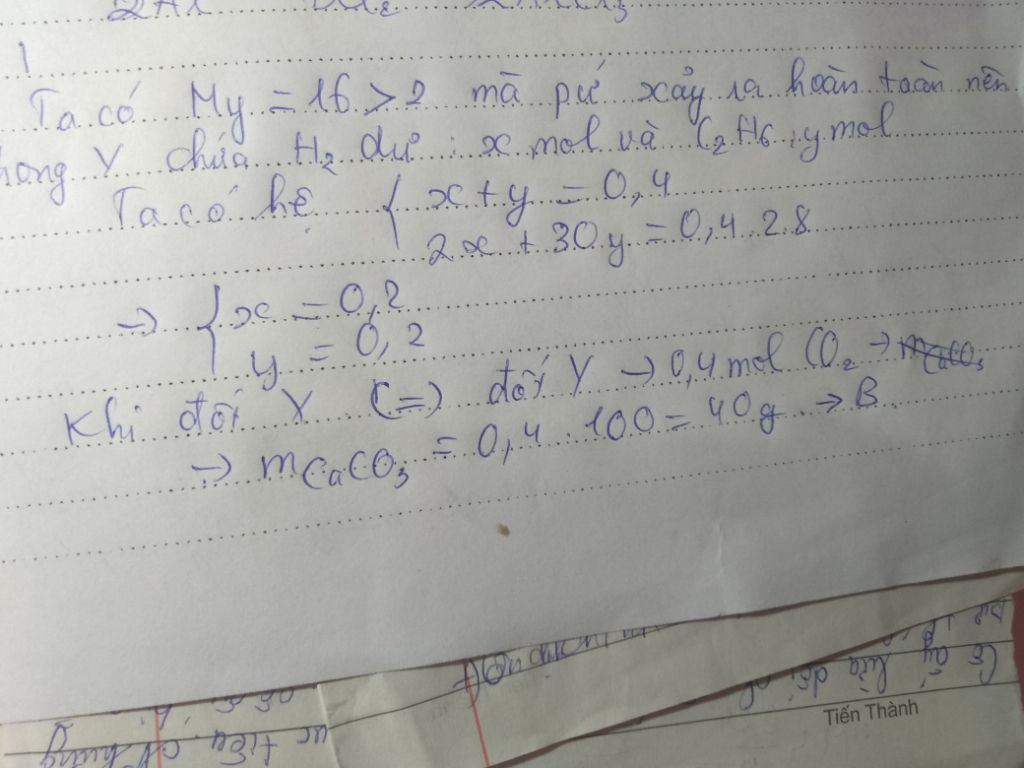 1
Ta có My = 16 > 2 mà pứ xảy ra hoàn toàn nên
hong Y chứa H2 dư : x mol và C2H6 : y mol
Ta có hệ { x + y = 0,4
2x + 30y = 0,4.2.8
→ { x = 0,2
y = 0,2
Khi đốt X (=) đốt Y → 0,4 mol CO2 →
→ mCaCO3 = 0,4 . 100 = 40g → B
Tiến Thành